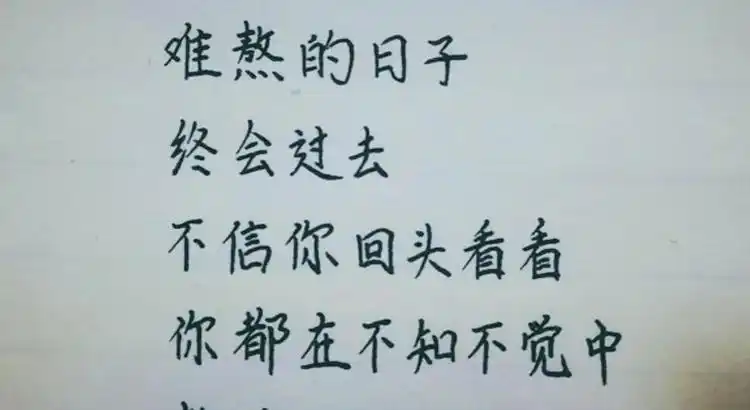 难熬的日子
终会过去
不信你回头看看
你都在不知不觉中